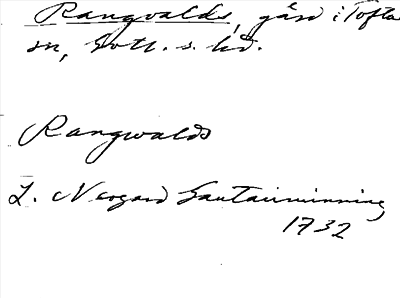 Rangvalds, gård i Tofta
sn, Gotl. s. hd.
Rangwalds
L. Neogard Gautauminning
1732